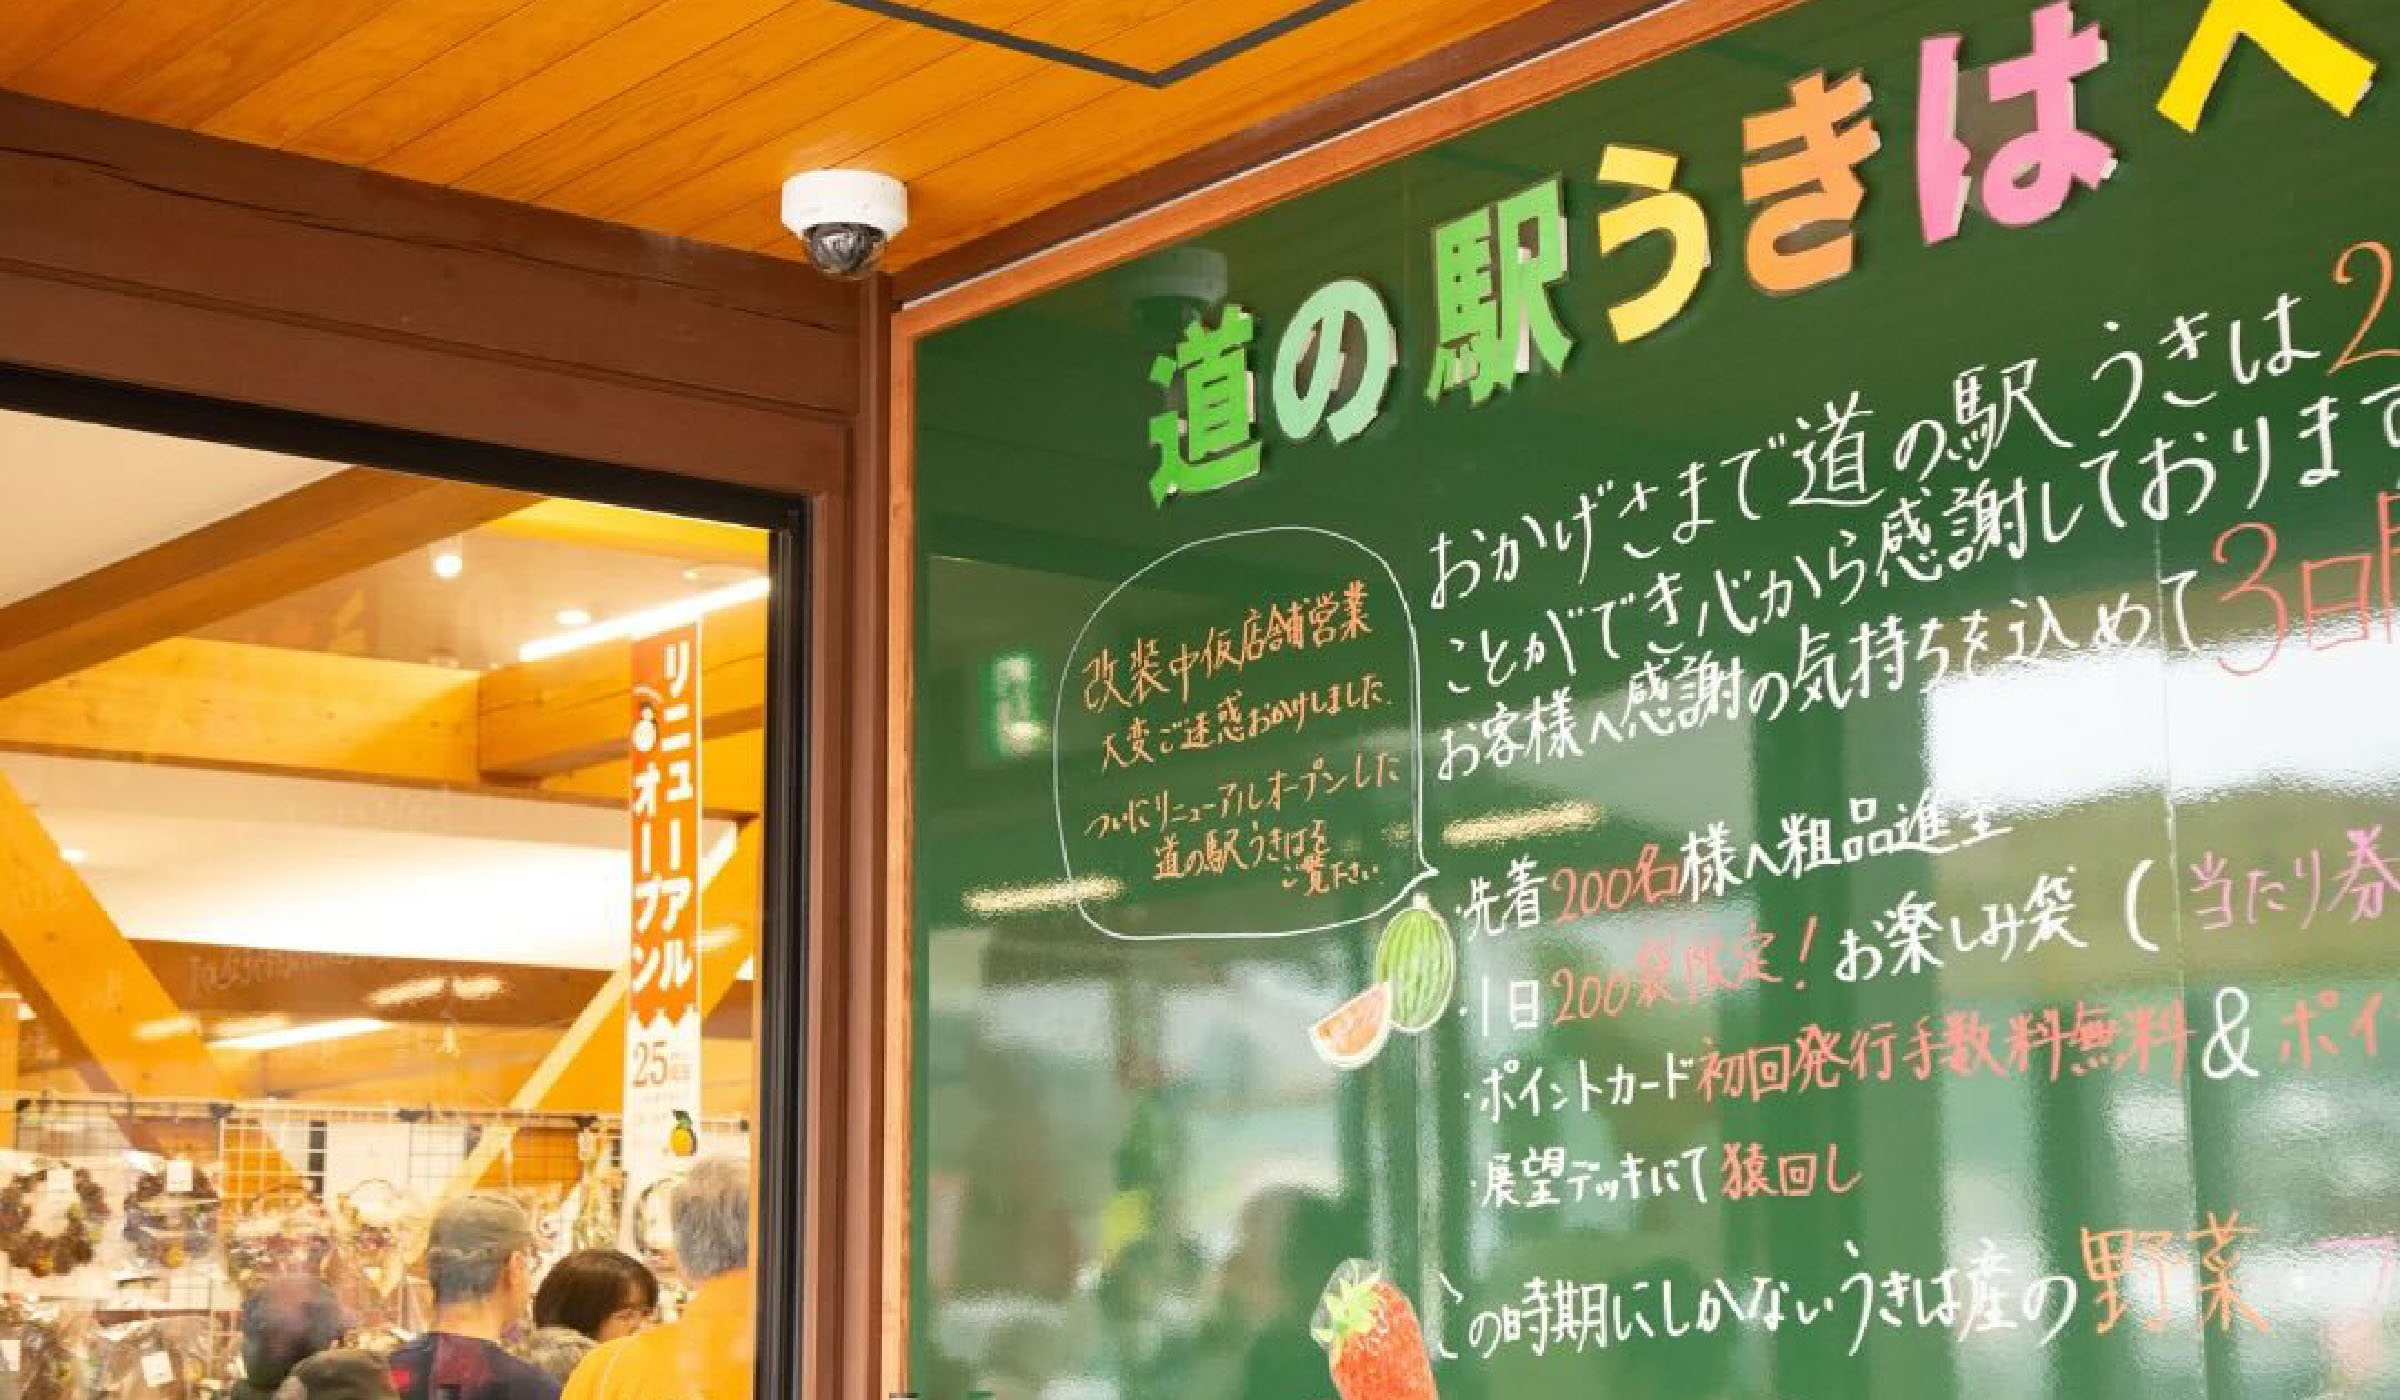 道の駅うきはへ
おかげさまで道の駅 うきは2
ことができ心から感謝しております
お客様へ感謝の気持ちを込めて3日間
改装中仮店舗営業
大変ご迷惑おかけしました。
ついにリニューアルオープンした
道の駅うきはを
ご覧下さい。
・先着200名様へ粗品進呈
・1日200袋限定！お楽しみ袋（当たり券
・ポイントカード初回発行手数料無料&ポイ
・展望デッキにて猿回し
この時期にしかないうきは産の野菜・フ
リニューアル
オープン
25